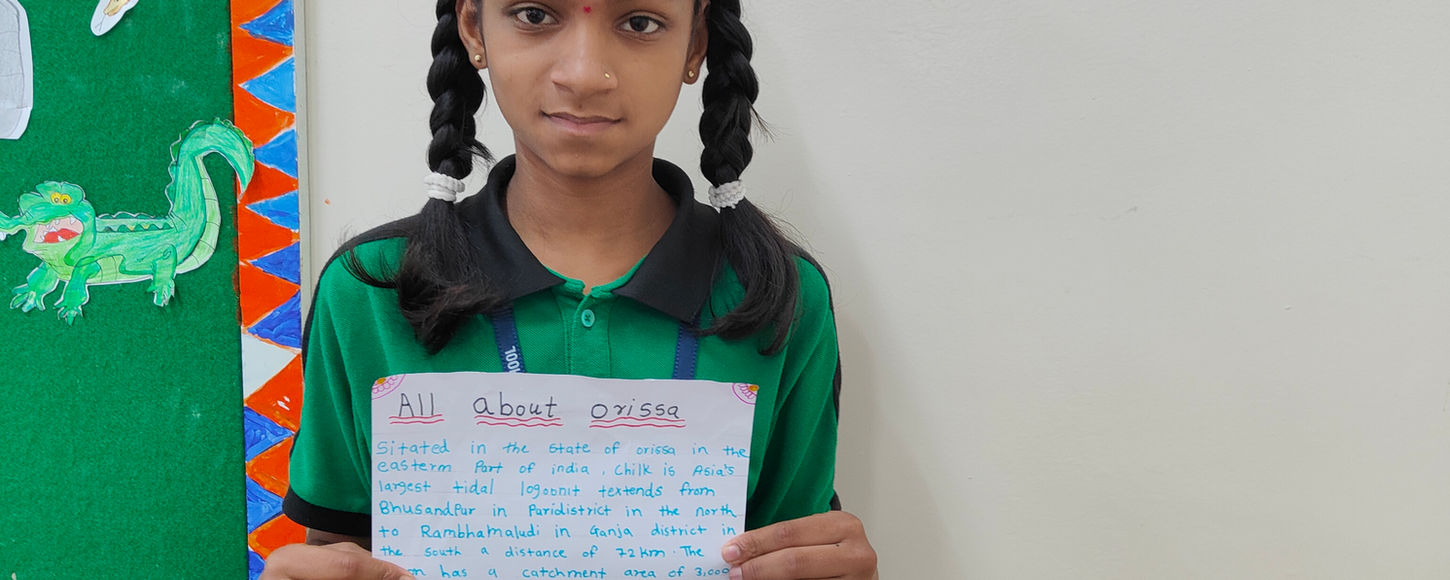 All about orissa
Sitated in the state of orissa in the
easterm Part of india, Chilk is Asia's
largest tidal logoonit textends from
Bhusandpur in Puridistrict in the north
to Rambhamaludi in Ganja district in
the south a distance of 72km. The
has a catchment area of 3,000